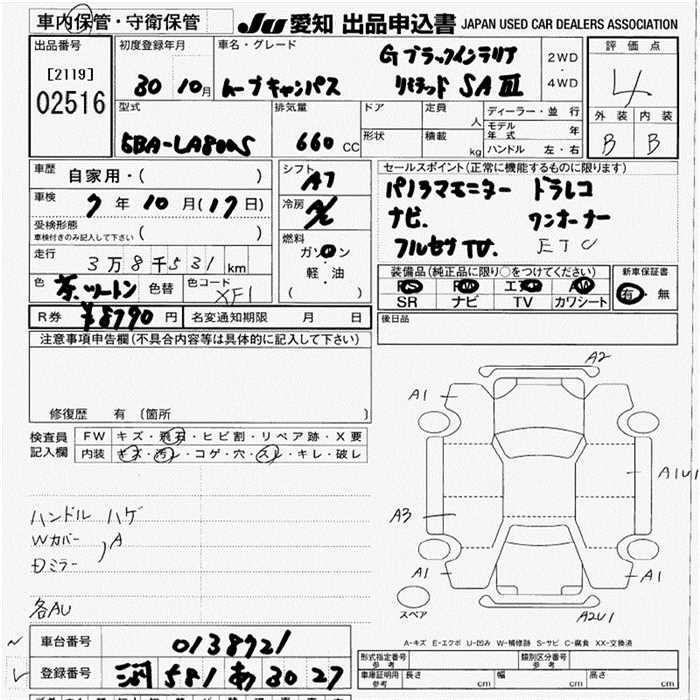 車内保管・守衛保管
JU 愛知 出品申込書 JAPAN USED CAR DEALERS ASSOCIATION
出品番号
[2119]
02516
初度登録年月
30 10月
車名・グレード
ムーブキャンバス
Gブラックインテリア
リミテッド SAⅢ
2WD
4WD
評価点
4
外装 内装
B B
型式
5BA-LA800S
排気量
660 CC
ドア
形状
定員
人
積載
kg
ディーラー・並行
モデル年式 年
ハンドル 左・右
車歴 自家用・( )
車検 7年10月(17日)
受検形態
車検付きのみ記入して下さい ( )
走行
3万8千531km
色 茶ツートン 色替 色コード XF1
シフト AT
冷房 A/C
燃料
ガソリン
軽・油
( )
セールスポイント(正常に機能するものに限ります)
パノラマモニター ドラレコ
ナビ. ワンオーナー
フルセグTV. ETC
装備品(純正品に限り○をつけてください)
PS PW エアB AW
SR ナビ TV カワシート
新車保証書
有・無
R券 ¥8790円 名変通知期限 月 日
後日品
注意事項申告欄(不具合内容等は具体的に記入して下さい)
修復歴 有 〔箇所 〕
検査員記入欄
FW キズ・飛石・ヒビ割・リペア跡・X要
内装 キズ・汚レ・コゲ・穴・スレ・キレ・破レ
ハンドル ハゲ
Wカバー
Dミラー ) A
各AU
A2
A1
A1U1
A3
A1
A1
A2U1
スペア
A-キズ E-エクボ U-凹み W-補修跡 S-サビ C-腐食 XX-交換済
車台番号 0138921
登録番号 581 あ 30 27
形式指定番号 参考
類別区分番号 参考
車庫証明用 参考 長さ cm 幅 cm 高さ cm